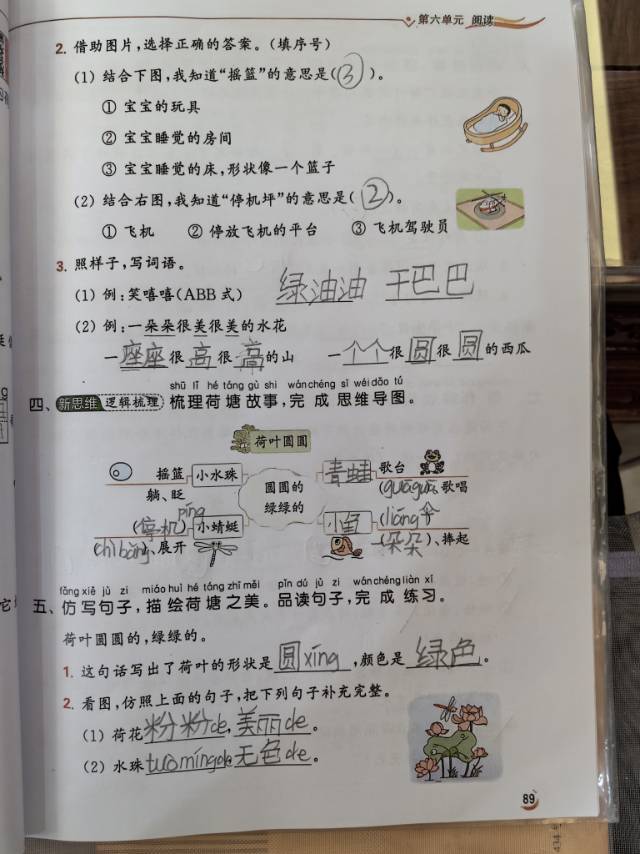 第六单元 阅读
2. 借助图片,选择正确的答案。(填序号)
(1) 结合下图,我知道“摇篮”的意思是(③)。
① 宝宝的玩具
② 宝宝睡觉的房间
③ 宝宝睡觉的床,形状像一个篮子
(2) 结合右图,我知道“停机坪”的意思是(②)。
① 飞机 ② 停放飞机的平台 ③ 飞机驾驶员
3. 照样子,写词语。
(1) 例:笑嘻嘻(ABB 式) 绿油油 干巴巴
(2) 例:一朵朵很美很美的水花
一座座很高很高的山 一个个很圆很圆的西瓜
shū lǐ hé táng gù shi wánchéng sī wéi dǎo tú
四、新思维 逻辑梳理 梳理荷塘故事,完成思维导图。
荷叶圆圆
摇篮 小水珠 圆圆的 青蛙 歌台
躺、眨 绿绿的 (guāguā)歌唱
píng
(停机) 小蜻蜓 小鱼 (liáng伞
(chìbǎng)、展开 (朵朵)、捧起
fǎng xiě jù zi miáo huì hé táng zhī měi pǐn dú jù zi wánchéng liàn xí
五、仿写句子,描绘荷塘之美。品读句子,完成练习。
荷叶圆圆的,绿绿的。
1. 这句话写出了荷叶的形状是圆xíng,颜色是绿色。
2. 看图,仿照上面的句子,把下列句子补充完整。
(1) 荷花粉粉de,美丽de。
(2) 水珠tuomíngde无色de。
89